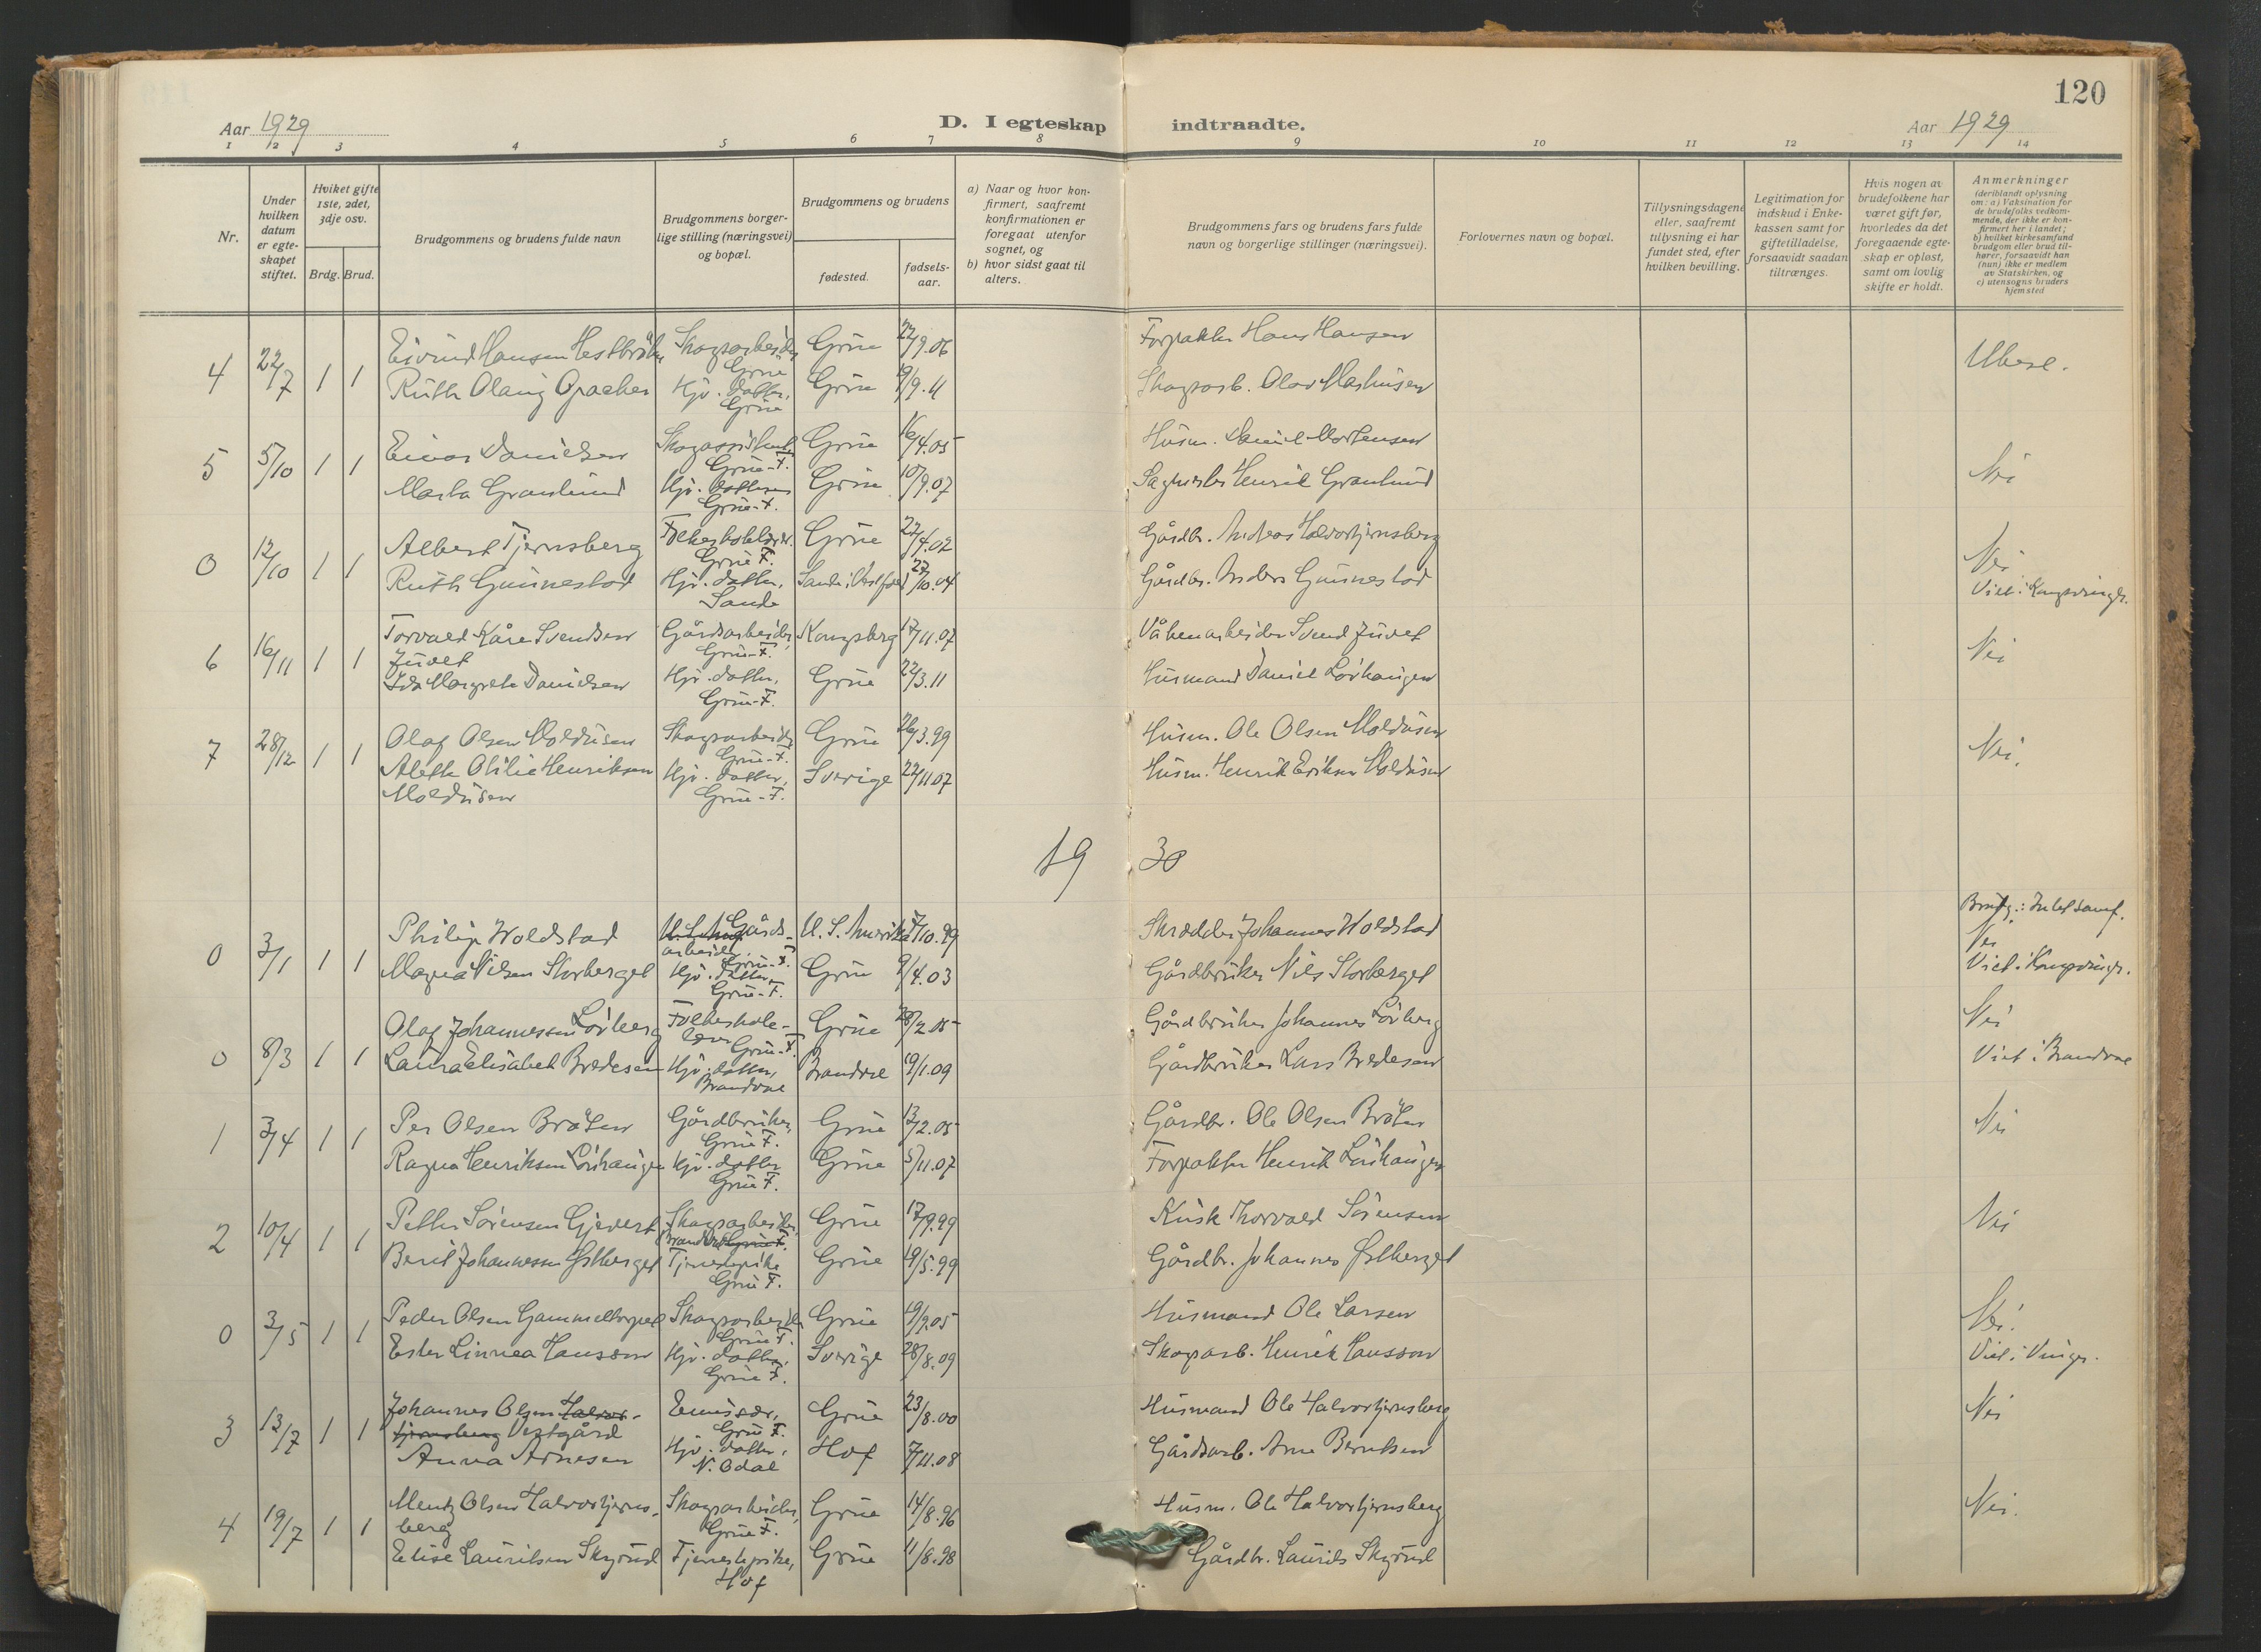 120
Aar 1929
D. I egteskap indtraadte.
Aar 1929
1 2 3 4 5 6 7 8 9 10 11 12 13 14
Nr.
Under hvilken datum er egteskapet stiftet.
Hvilket gifte 1ste, 2det, 3dje osv.
Brdg. Brud.
Brudgommens og brudens fulde navn
Brudgommens borgerlige stilling (næringsvei) og bopæl.
Brudgommens og brudens
fødested.
fødselsaar.
a) Naar og hvor konfirmert, saafremt konfirmationen er foregaat utenfor sognet, og
b) hvor sidst gaat til alters.
Brudgommens fars og brudens fars fulde navn og borgerlige stillinger (næringsvei).
Forlovernes navn og bopæl.
Tillysningsdagene eller, saafremt tillysning ei har fundet sted, efter hvilken bevilling.
Legitimation for indskud i Enkekassen samt for giftetilladelse, forsaavidt saadan tiltrænges.
Hvis nogen av brudefolkene har været gift før, hvorledes da det foregaaende egteskap er opløst, samt om lovlig skifte er holdt.
Anmerkninger (deriblandt oplysning om: a) Vaksination for de brudefolks vedkommende, der ikke er konfirmert her i landet; b) hvilket kirkesamfund brudgom eller brud tilhører, forsaavidt han (hun) ikke er medlem av Statskirken, og c) utensogns bruders hjemsted
4 22/7 1 1 Eivind Hansen Hestbråten Skogsarbeider Grue Grue 22/9.06 Forpakter Hans Hansen Ubesl.
Ruth Olaug Opacher Hjv. datter, Grue Grue 9/9.11 Skogsarb. Olav Mathisen
5 5/10 1 1 Einar Danielsen Skogassistent Grue-F. Grue 16/4.05 Husm. Daniel Mortensen Nei
Marta Granlund Hjv. datter Grue-F. Grue 10/9.07 Henrik Granlund
0 12/10 1 1 Albert Tjernsberg Folkeskolelærer. Grue F. Grue 22/4.02 Gårdbr. Andreas Halvortjernsberg Nei
Ruth Gunnestad Hjv. datter, Sande Sande i Vestfold 27/10.04 Gårdbr. Anders Gunnestad Viet i Kongsvinger.
6 16/11 1 1 Torvald Kåre Svendsen Juvet Gårdsarbeider, Grue-F. Kongsberg 17/11.07 Våbenarbeider Svend Juvet Nei
Ida Margrete Danielsen Hjv. datter, Grue-F. Grue 22/3.11 Husmand Daniel Lövhaugen
7 28/12 1 1 Olaf Olsen Moldusen Skogsarbeider Grue-F. Grue 26/3.99 Husm. Ole Olsen Moldusen Nei.
Alette Otilie Henriksen Moldusen Hjv. datter, Grue-F. Sverige 22/11.07 Husm. Henrik Eriksen Moldusen
19 30
0 3/1 1 1 Philip Woldstad Gårdsarbeider Grue-F. U.S. Amerika 7/10.99 Skrædder Johannes Woldstad Nei
Magna Nilsen Storberget Hjv. datter, Grue-F. Grue 9/4.03 Gårdbruker Nils Storberget Viet i Kongsvinger.
0 8/3 1 1 Olaf Johannessen Lövberg Folkeskolelærer Grue-F. Grue 28/2.05 Gårdbruker Johannes Lövberg Nei
Laura Elisabet Bredesen Hjv. datter, Brandval Brandval 19/1.09 Gårdbruker Lars Bredesen Viet i Brandval
1 3/4 1 1 Per Olsen Bråten Gårdbruker, Grue F. Grue 13/2.05 Gårdbr. Ole Olsen Bråten Nei
Ragna Henriksen Lövhaugen Hjv. datter Grue F. Grue 5/11.07 Forpakter Henrik Lövhaugen
2 10/4 1 1 Petter Sörensen Gjevert Skogsarbeider, Brandval Grue F. Grue 17/9.99 Kusk Thorvald Sörensen Nei
Berit Johannessen Østberget Tjenestepike Grue F. Grue 19/5.99 Gårdbr. Johannes Østberget
0 3/5 1 1 Peder Olsen Gammeltorpet Skogsarbeider Grue F. Grue 19/9.05 Husmand Ole Larsen Nei.
Ester Linnea Hansson Hjv. datter, Grue F. Sverige 28/8.09 Skogsarb. Henrik Hansson Viet i Vinger.
3 13/7 1 1 Johannes Olsen Halvortjernsberg Vestgård Emissær, Grue F. Grue 23/8.00 Husmand Ole Halvortjernsberg Nei
Anna Arnesen Hjv. datter, N. Odal Hof 7/11.08 Gårdsarb. Arne Berntsen
4 19/7 1 1 Mentz Olsen Halvortjernsberg Skogsarbeider, Grue F. Grue 14/8.96 Husm. Ole Halvortjernsberg Nei.
Elise Lauritsen Skyrud Tjenestepike, Hof Grue 11/8.98 Gårdbr. Laurits Skyrud